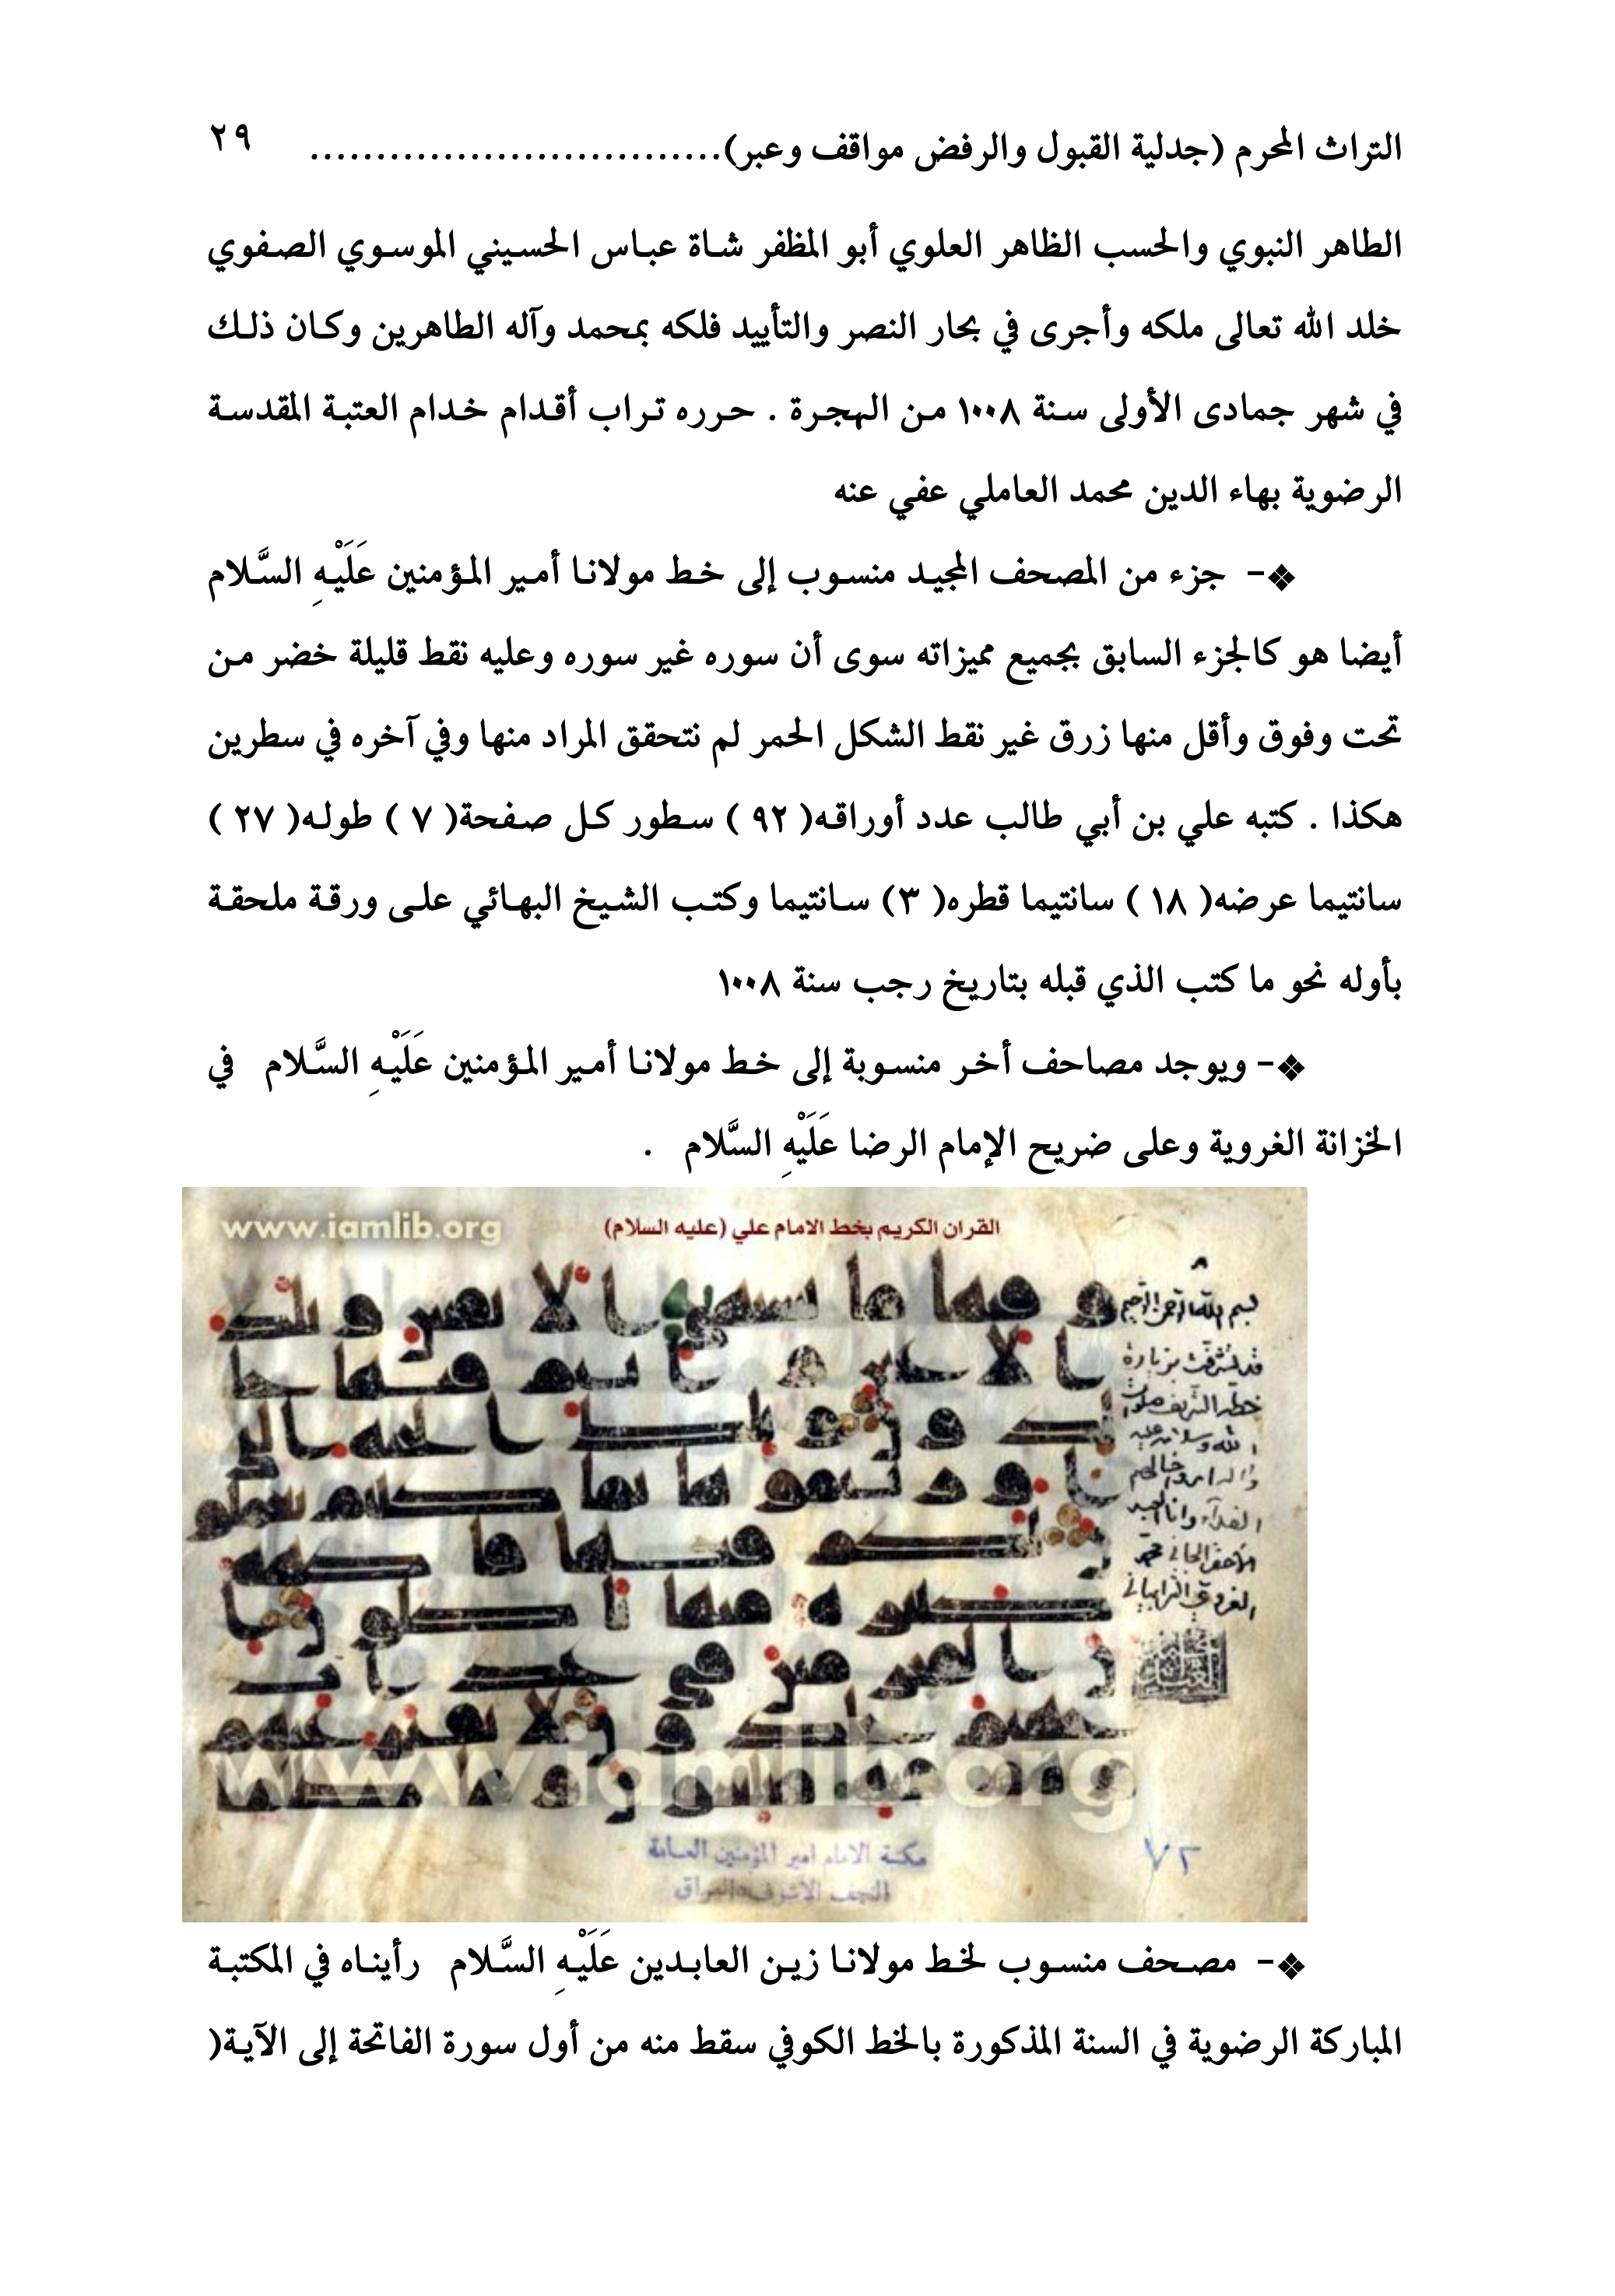 التراث المحرم (جدلية القبول والرفض مواقف وعبر)............................... ٢٩
الطاهر النبوي والحسب الظاهر العلوي أبو المظفر شاة عباس الحسيني الموسوي الصفوي
خلد الله تعالى ملكه وأجرى في بحار النصر والتأييد فلكه بمحمد وآله الطاهرين وكان ذلك
في شهر جمادى الأولى سنة ١٠٠٨ من الهجرة . حرره تراب أقدام خدام العتبة المقدسة
الرضوية بهاء الدين محمد العاملي عفي عنه
❖- جزء من المصحف المجيد منسوب إلى خط مولانا أمير المؤمنين عَلَيْهِ السَّلام
أيضا هو كالجزء السابق بجميع مميزاته سوى أن سوره غير سوره وعليه نقط قليلة خضر من
تحت وفوق وأقل منها زرق غير نقط الشكل الحمر لم نتحقق المراد منها وفي آخره في سطرين
هكذا . كتبه علي بن أبي طالب عدد أوراقه( ٩٢ ) سطور كل صفحة( ٧ ) طوله( ٢٧ )
سانتيما عرضه( ١٨ ) سانتيما قطره( ٣) سانتيما وكتب الشيخ البهائي على ورقة ملحقة
بأوله نحو ما كتب الذي قبله بتاريخ رجب سنة ١٠٠٨
❖- ويوجد مصاحف أخر منسوبة إلى خط مولانا أمير المؤمنين عَلَيْهِ السَّلام في
الخزانة الغروية وعلى ضريح الإمام الرضا عَلَيْهِ السَّلام .
القران الكريم بخط الامام علي (عليه السلام)
www.iamlib.org
بسم الله الرحمن الرحيم
www.iamlib.org
مكتبة الامام امير المؤمنين العامة
النجف الاشرف - العراق
٧٢
❖- مصحف منسوب لخط مولانا زين العابدين عَلَيْهِ السَّلام رأيناه في المكتبة
المباركة الرضوية في السنة المذكورة بالخط الكوفي سقط منه من أول سورة الفاتحة إلى الآية(